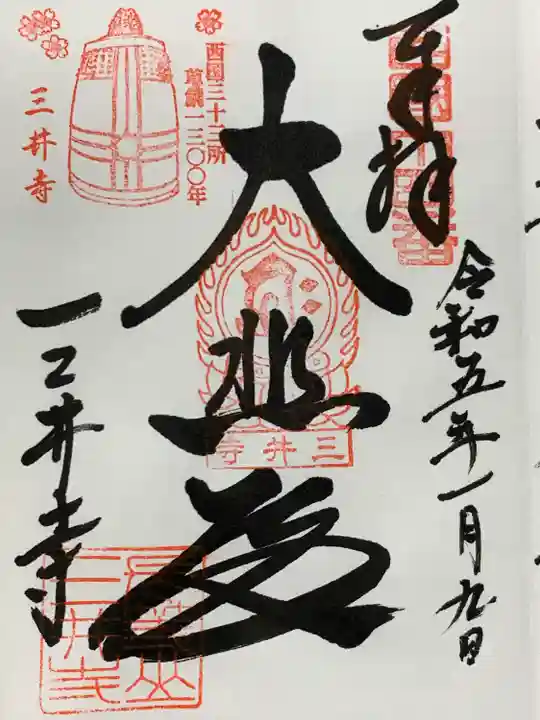 奉拝
令和五年一月九日
大悲殿
三井寺
西国三十三所
草創一三〇〇年
三井寺
三井寺